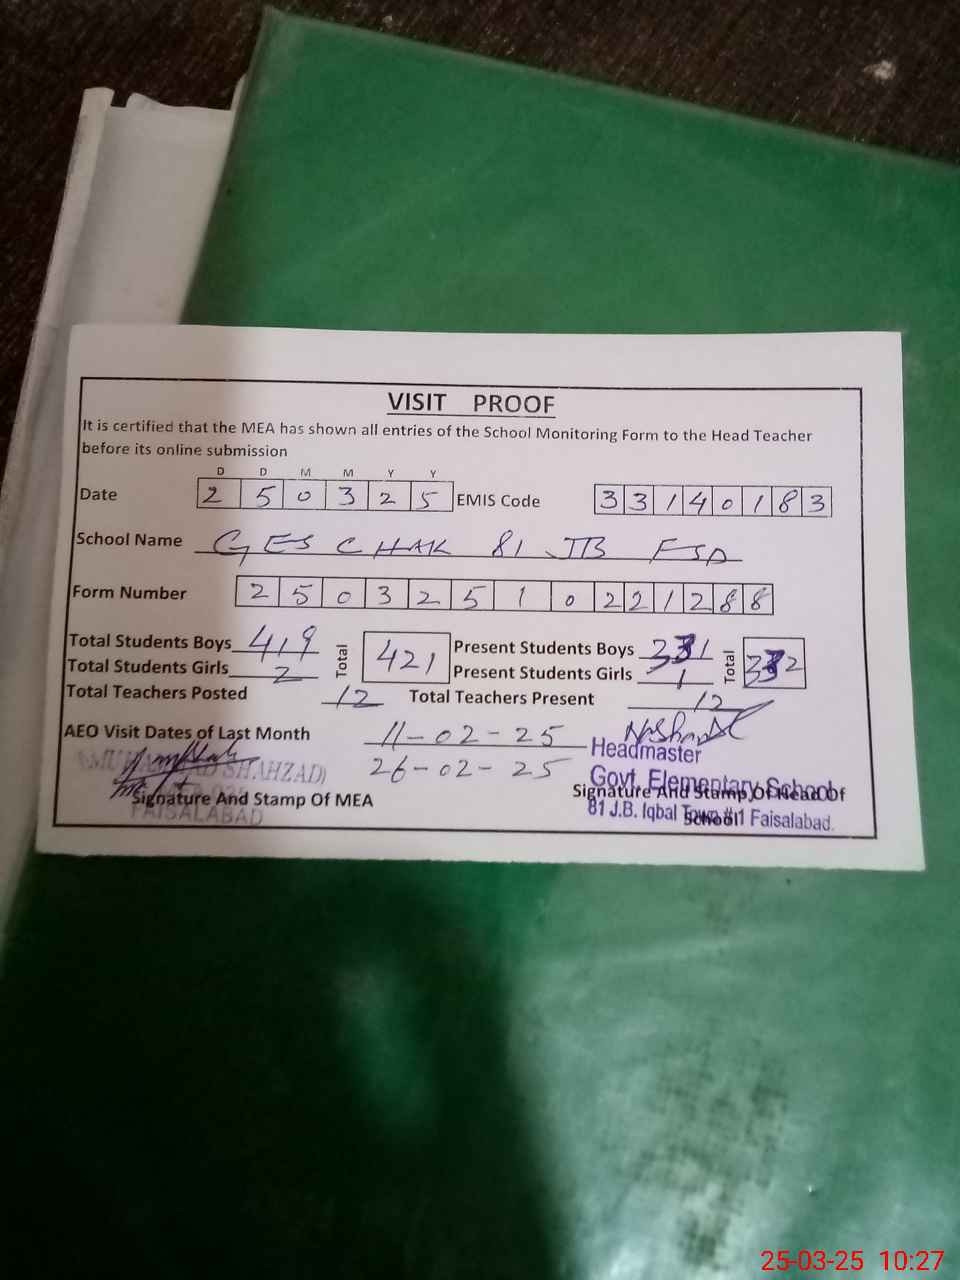 VISIT PROOF
It is certified that the MEA has shown all entries of the School Monitoring Form to the Head Teacher
before its online submission
D D M M Y Y
Date 2 5 0 3 2 5 EMIS Code 3 3 1 4 0 1 8 3
School Name GES CHAK 81 JB FSD
Form Number 2 5 0 3 2 5 1 0 2 2 1 2 8 8
Total Students Boys 419 Total 421 Present Students Boys 331 Total 332
Total Students Girls 2 Present Students Girls 1
Total Teachers Posted 12 Total Teachers Present 12
AEO Visit Dates of Last Month 11-02-25
26-02-25
Headmaster
(MUHAMMAD SHAHZAD)
Govt. Elementary School
Signature And Stamp Of MEA Signature And Stamp Of Head Of
School
81 J.B. Iqbal Town #1 Faisalabad.
FAISALABAD
25-03-25 10:27